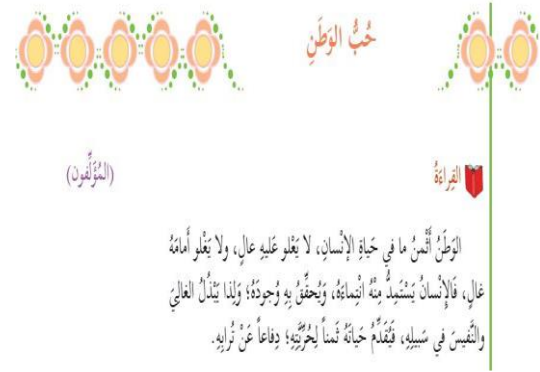 حُبُّ الوَطَنِ
القِراءَةُ
(المُؤَلِّفون)
الوَطَنُ أَثْمنُ ما في حَياةِ الإنْسانِ، لا يَعْلو عَليهِ عالٍ، ولا يَغْلو أَمامَهُ
غالٍ، فَالإِنْسانُ يَسْتَمِدُّ مِنْهُ انْتِماءَهُ، وَيُحقِّقُ بِهِ وُجودَهُ؛ وَلِذا يَبْذُلُ الغالِيَ
والنَّفيسَ في سَبيلِهِ، فَيُقَدِّمُ حَياتَهُ ثَمناً لِحُرِّيَّتِهِ؛ دِفاعاً عَنْ تُرابِهِ.